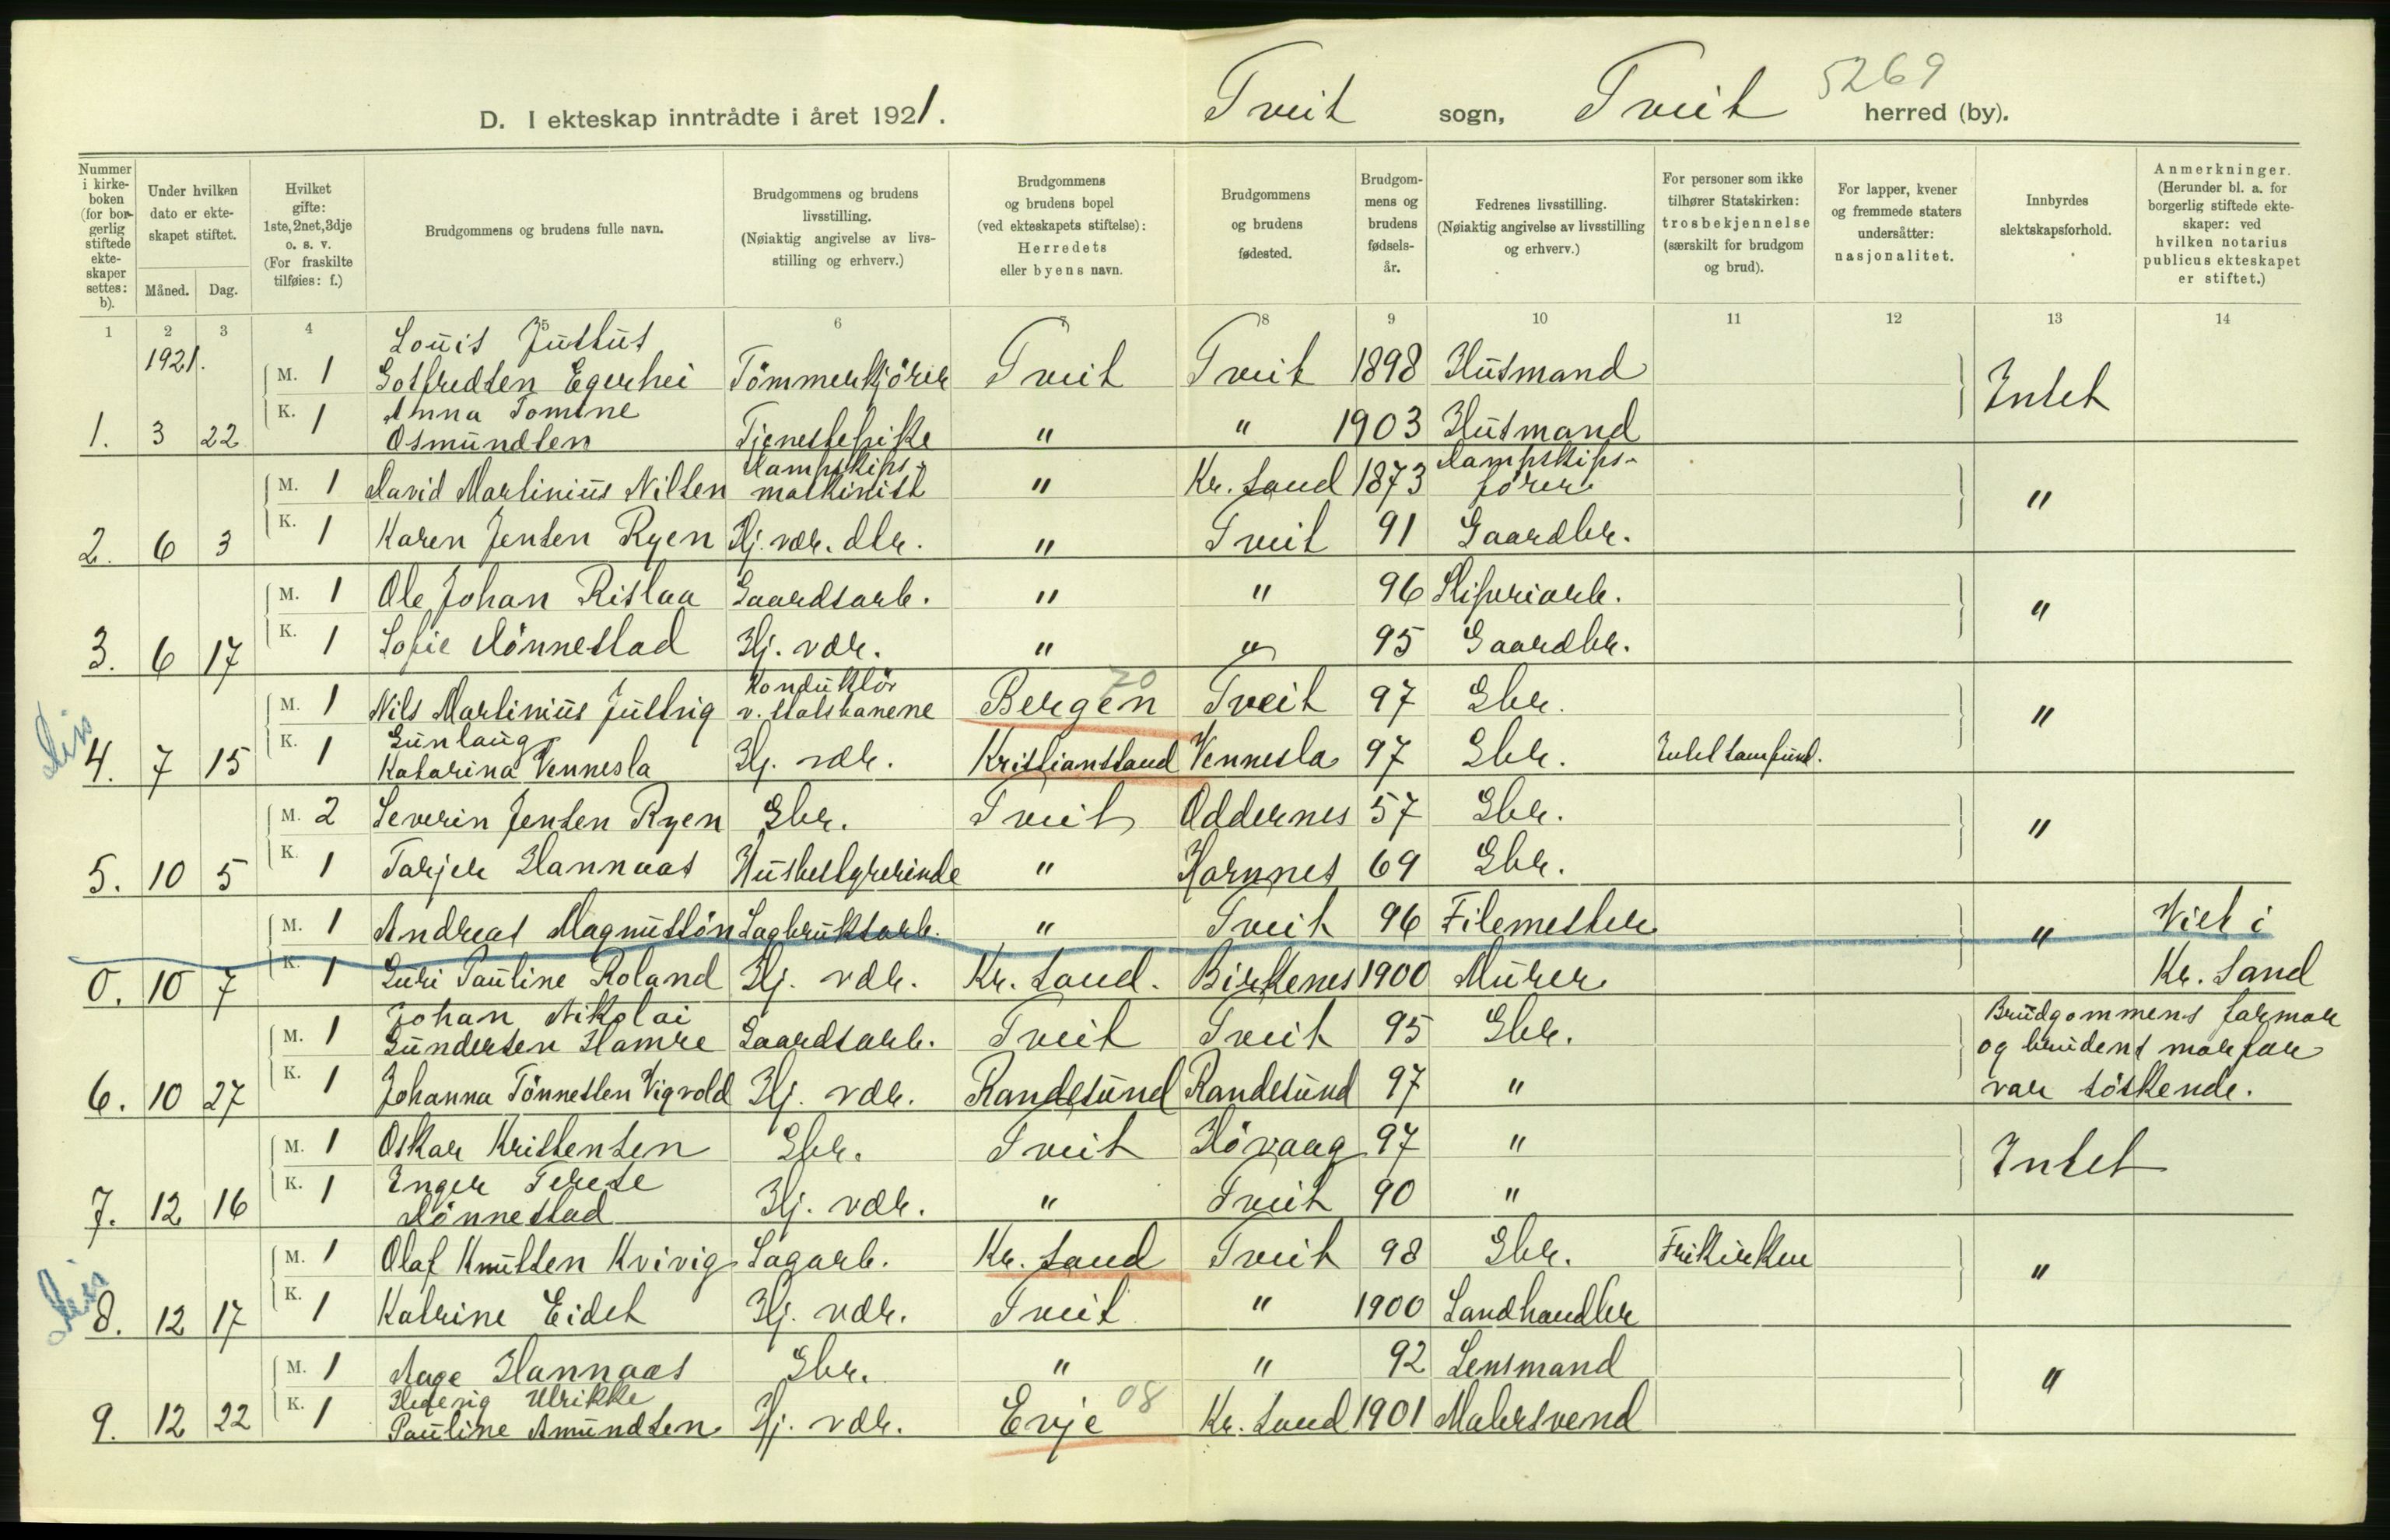 5269
D. I ekteskap inntrådte i året 1921. Tveit sogn, Tveit herred (by).
Nummer i kirkeboken (for borgerlig stiftede ekteskaper settes: b).
Under hvilken dato er ekteskapet stiftet.
Måned. Dag.
Hvilket gifte: 1ste, 2net, 3dje o. s. v. (For fraskilte tilføies: f.)
Brudgommens og brudens fulle navn.
Brudgommens og brudens livsstilling. (Nøiaktig angivelse av livsstilling og erhverv.)
Brudgommens og brudens bopel (ved ekteskapets stiftelse): Herredets eller byens navn.
Brudgommens og brudens fødested.
Brudgommens og brudens fødselsår.
Fedrenes livsstilling. (Nøiaktig angivelse av livsstilling og erhverv.)
For personer som ikke tilhører Statskirken: trosbekjennelse (særskilt for brudgom og brud).
For lapper, kvener og fremmede staters undersåtter: nasjonalitet.
Innbyrdes slektskapsforhold.
Anmerkninger. (Herunder bl. a. for borgerlig stiftede ekteskaper: ved hvilken notarius publicus ekteskapet er stiftet.)
1 2 3 4 5 6 7 8 9 10 11 12 13 14
1921.
M. 1 Louis Justus Gotfredsen Egerhei Tömmerkjörer Tveit Tveit 1898 Husmand Intet
1. 3 22 K. 1 Anna Tomine Osmundsen Tjenestepike " " 1903 Husmand
M. 1 David Martinius Nilsen Dampskips-maskinist " Kr. sand 1873 Dampskips-förer "
2. 6 3 K. 1 Karen Jensen Ryen Hj. vær. dtr. " Tveit 91 Gaardbr.
M. 1 Ole Johan Rislaa Gaardsarb. " " 96 Sliperiarb. "
3. 6 17 K. 1 Sofie Dönnestad Hj. vdr. " " 95 Gaardbr.
M. 1 Nils Martinius Justvig Konduktör v. statsbanene Bergen 20 Tveit 97 Gbr. "
4. 7 15 K. 1 Gunlaug Katarina Vennesla Hj. vdr. Kristianssand Vennesla 97 Gbr. Intet samfund.
M. 2 Severin Jensen Ryen Gbr. Tveit Oddernes 57 Gbr. "
5. 10 5 K. 1 Tarjer Hannaas Husbestyrerinde " Hornnes 69 Gbr.
M. 1 Andreas Magnussön Sagbruksarb. " Tveit 96 Filemester " Viet i
0. 10 7 K. 1 Guri Pauline Roland Hj. vdr. Kr. sand. Birkenes 1900 Murer Kr. sand
M. 1 Johan Nikolai Gundersen Hamre Gaardsarb. Tveit Tveit 95 Gbr. Brudgommens farmor og brudens morfar
6. 10 27 K. 1 Johanna Tönnessen Vigvold Hj. vdr. Randesund Randesund 97 " var söskende.
M. 1 Oskar Kristensen Gbr. Tveit Hövaag 97 " Intet
7. 12 16 K. 1 Inger Terese Dönnestad Hj. vdr. " Tveit 90 "
M. 1 Olaf Knutsen Kvivig Sagarb. Kr. sand Tveit 98 Gbr. Frikirken "
8. 12 17 K. 1 Katrine Eidet Hj. vdr. Tveit " 1900 Landhandler
M. 1 Aage Hannaas Gbr. " " 92 Lensmand "
9. 12 22 K. 1 Hedevig Ulrikke Pauline Amundsen Hj. vdr. Evje 08 Kr. sand 1901 Malersvend